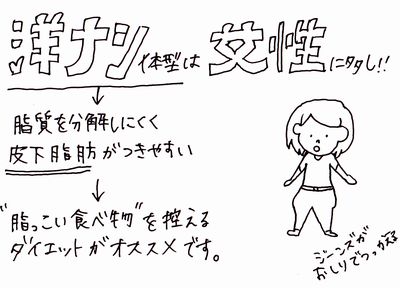 洋ナシ体型は女性に多し!!
脂質を分解しにくく
皮下脂肪がつきやすい
"脂っこい食べ物"を控える
ダイエットがオススメです。
ジーンズが
おしりでつっかえる